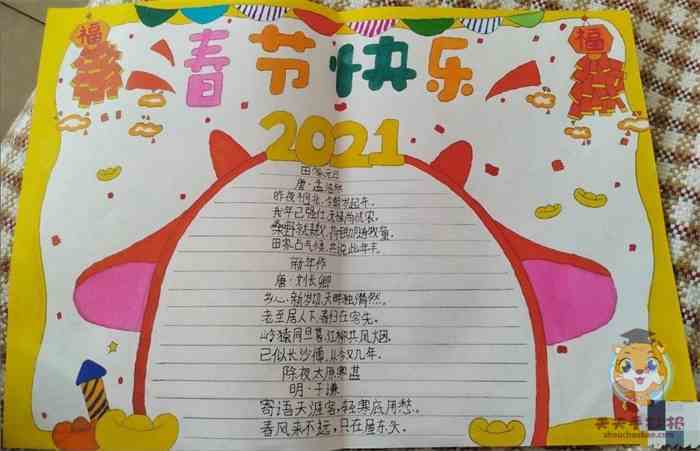 福
福
春节快乐
2021
田家元日
唐·孟浩然
昨夜斗回北,今朝岁起东。
我年已强仕,无禄尚忧农。
桑野就耕父,荷锄随牧童。
田家占气候,共说此年丰。
新年作
唐·刘长卿
乡心新岁切,天畔独潸然。
老至居人下,春归在客先。
岭猿同旦暮,江柳共风烟。
已似长沙傅,从今又几年。
除夜太原寒甚
明·于谦
寄语天涯客,轻寒底用愁。
春风来不远,只在屋东头。
天天手抄报
shouchaobao.com